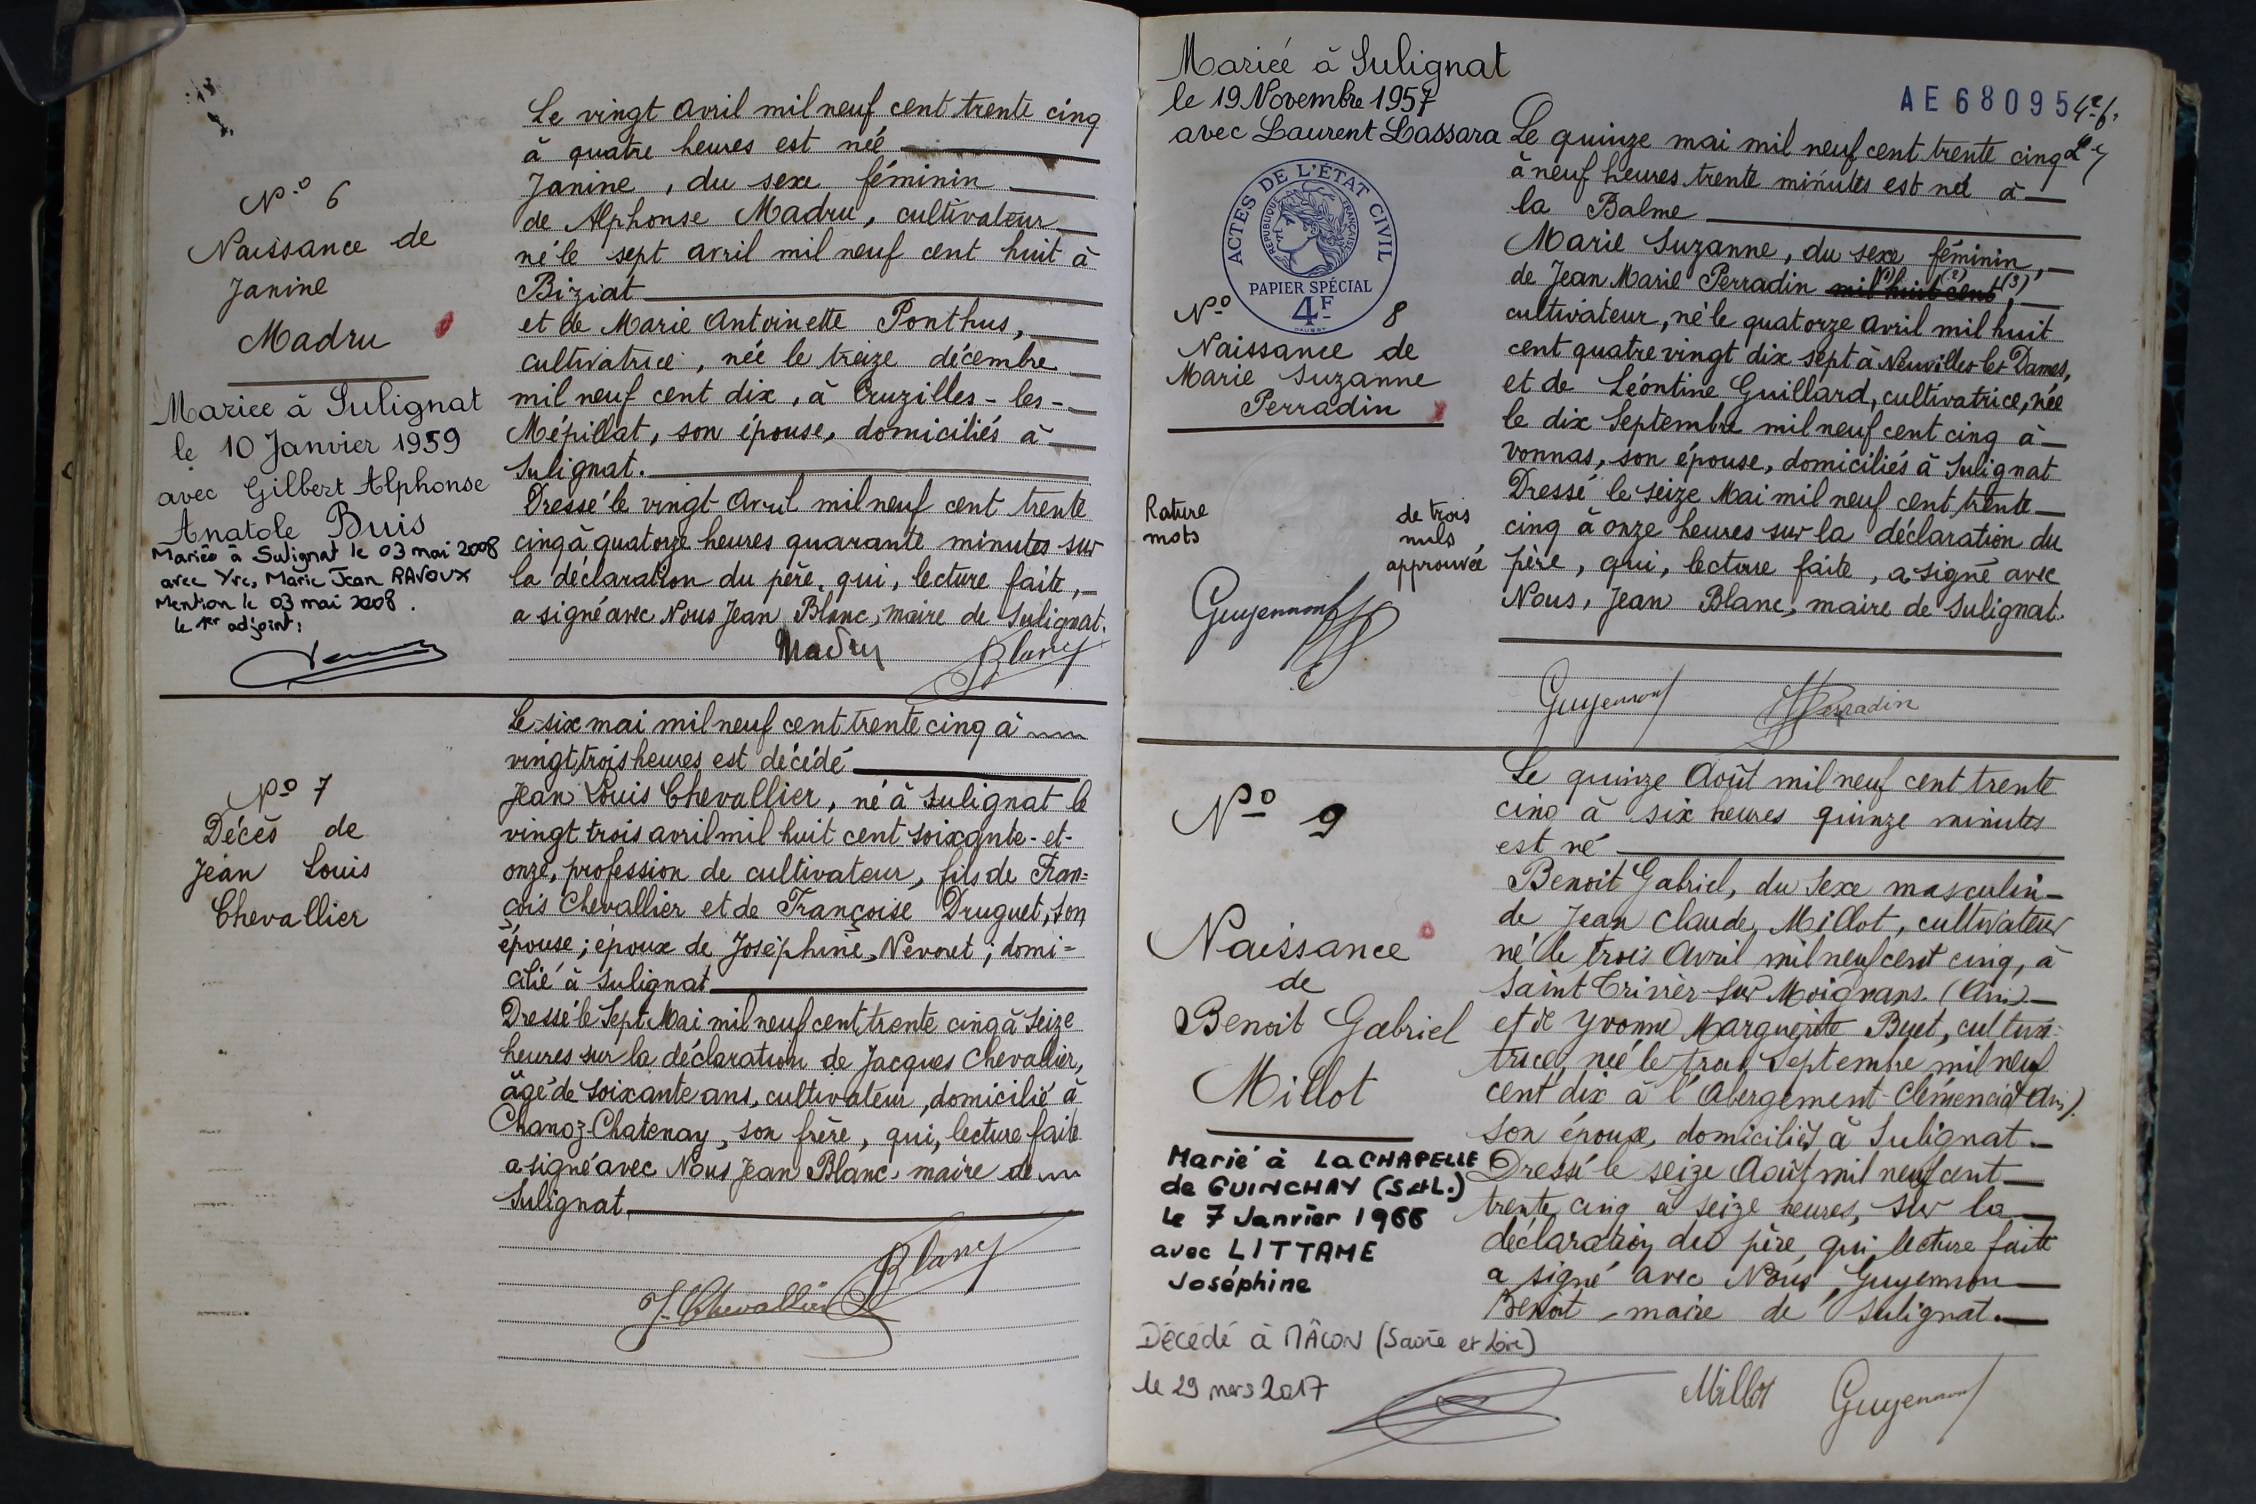 N.o 6
Naissance de
Janine
Madru
Mariée à Sulignat
le 10 Janvier 1959
avec Gilbert Alphonse
Anatole Buis
Mariée à Sulignat le 03 mai 2008
avec Yve, Marie Jean RAVOUX
Mention le 03 mai 2008.
le 1er adjoint:
Le vingt avril mil neuf cent trente cinq
à quatre heures est née
Janine, du sexe féminin
de Alphonse Madru, cultivateur
né le sept avril mil neuf cent huit à
Biziat
et de Marie Antoinette Ponthus,
cultivatrice, née le treize décembre
mil neuf cent dix, à Cruzilles-les-
Mépillat, son épouse, domiciliés à
Sulignat.
Dressé le vingt avril mil neuf cent trente
cinq à quatorze heures quarante minutes sur
la déclaration du père, qui, lecture faite,
a signé avec Nous Jean Blanc, maire de Sulignat.
Madru Blanc
No 7
Décès de
Jean Louis
Chevallier
Le six mai mil neuf cent trente cinq à
vingt trois heures est décédé
Jean Louis Chevallier, né à Sulignat le
vingt trois avril mil huit cent soixante-et-
onze, profession de cultivateur, fils de Fran=
çois Chevallier et de Françoise Druguet, son
épouse; époux de Joséphine Nevoret; domi=
cilié à Sulignat
Dressé le Sept Mai mil neuf cent trente cinq à seize
heures sur la déclaration de Jacques Chevallier,
âgé de soixante ans, cultivateur, domicilié à
Chanoz-Chatenay, son frère, qui, lecture faite
a signé avec Nous Jean Blanc, maire de
Sulignat
Blanc
J. Chevallier
Mariée à Sulignat
le 19 Novembre 1957
avec Laurent Lassara
ACTES DE L'ÉTAT CIVIL
RÉPUBLIQUE FRANÇAISE
PAPIER SPÉCIAL
4F
AE 68095
No 8
Naissance de
Marie Suzanne
Perradin
Rature de trois
mots nuls
approuvée
Guyennont
Le quinze mai mil neuf cent trente cinq
à neuf heures trente minutes est né à
la Balme
Marie Suzanne, du sexe féminin,
de Jean Marie Perradin mil huit cent,
(1) (2) (3)
cultivateur, né le quatorze avril mil huit
cent quatre vingt dix sept à Neuville-les-Dames,
et de Léontine Guillard, cultivatrice, née
le dix Septembre mil neuf cent cinq à
vonnas, son épouse, domiciliés à Sulignat
Dressé le seize Mai mil neuf cent trente
cinq à onze heures sur la déclaration du
père, qui, lecture faite, a signé avec
Nous, Jean Blanc, maire de Sulignat.
Guyennont Perradin
No 9
Naissance
de
Benoit Gabriel
Millot
Marié à LaCHAPELLE
de GUINCHAY (S&L.)
le 7 Janvier 1966
avec LITTAME
Joséphine
Décédé à MÂCON (Saône et Loire)
le 29 mars 2017
Le quinze Août mil neuf cent trente
cinq à six heures quinze minutes
est né
Benoit Gabriel, du sexe masculin
de Jean Claude Millot, cultivateur
né le trois Avril mil neuf cent cinq, à
Saint Trivier-sur Moignans. (Ain)
et de Yvonne Marguerite Buet, cultiva-
trice, née le trois Septembre mil neuf
cent dix à l'Abergement-Clémenciat (Ain).
son épouse, domiciliés à Sulignat.
Dressé le seize Août mil neuf cent
trente cinq à seize heures, sur la
déclaration du père, qui, lecture faite
a signé avec Nous, Guyennon
Benoit, maire de Sulignat.
Millot Guyennont